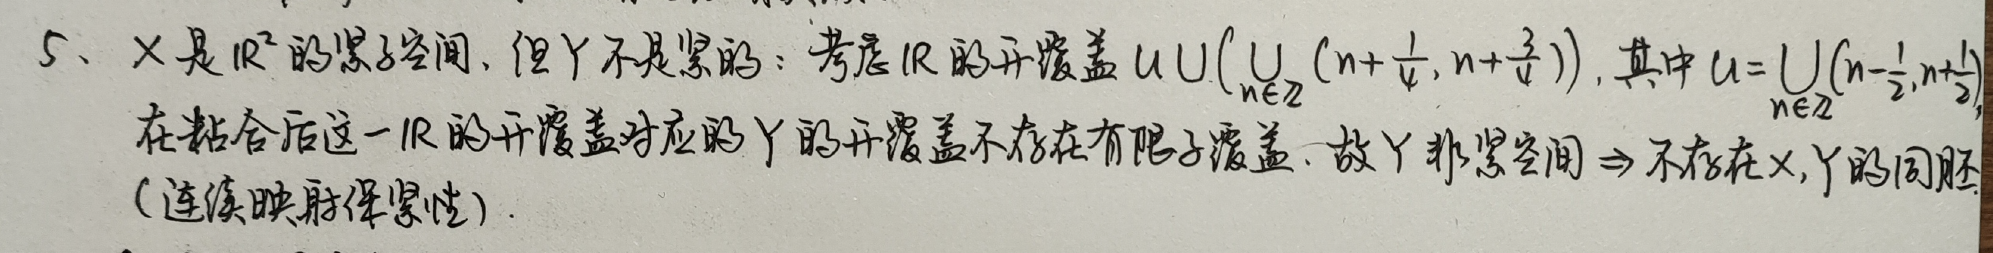 5、X是ℝ²的紧子空间，但Y不是紧的：考虑ℝ的开覆盖 U∪(⋃_{n∈ℤ}(n+1/4, n+3/4))，其中U=⋃_{n∈ℤ}(n-1/2, n+1/2)，
在粘合后这一ℝ的开覆盖对应的Y的开覆盖不存在有限子覆盖、故Y非紧空间⇒不存在X,Y的同胚
（连续映射保紧性）.